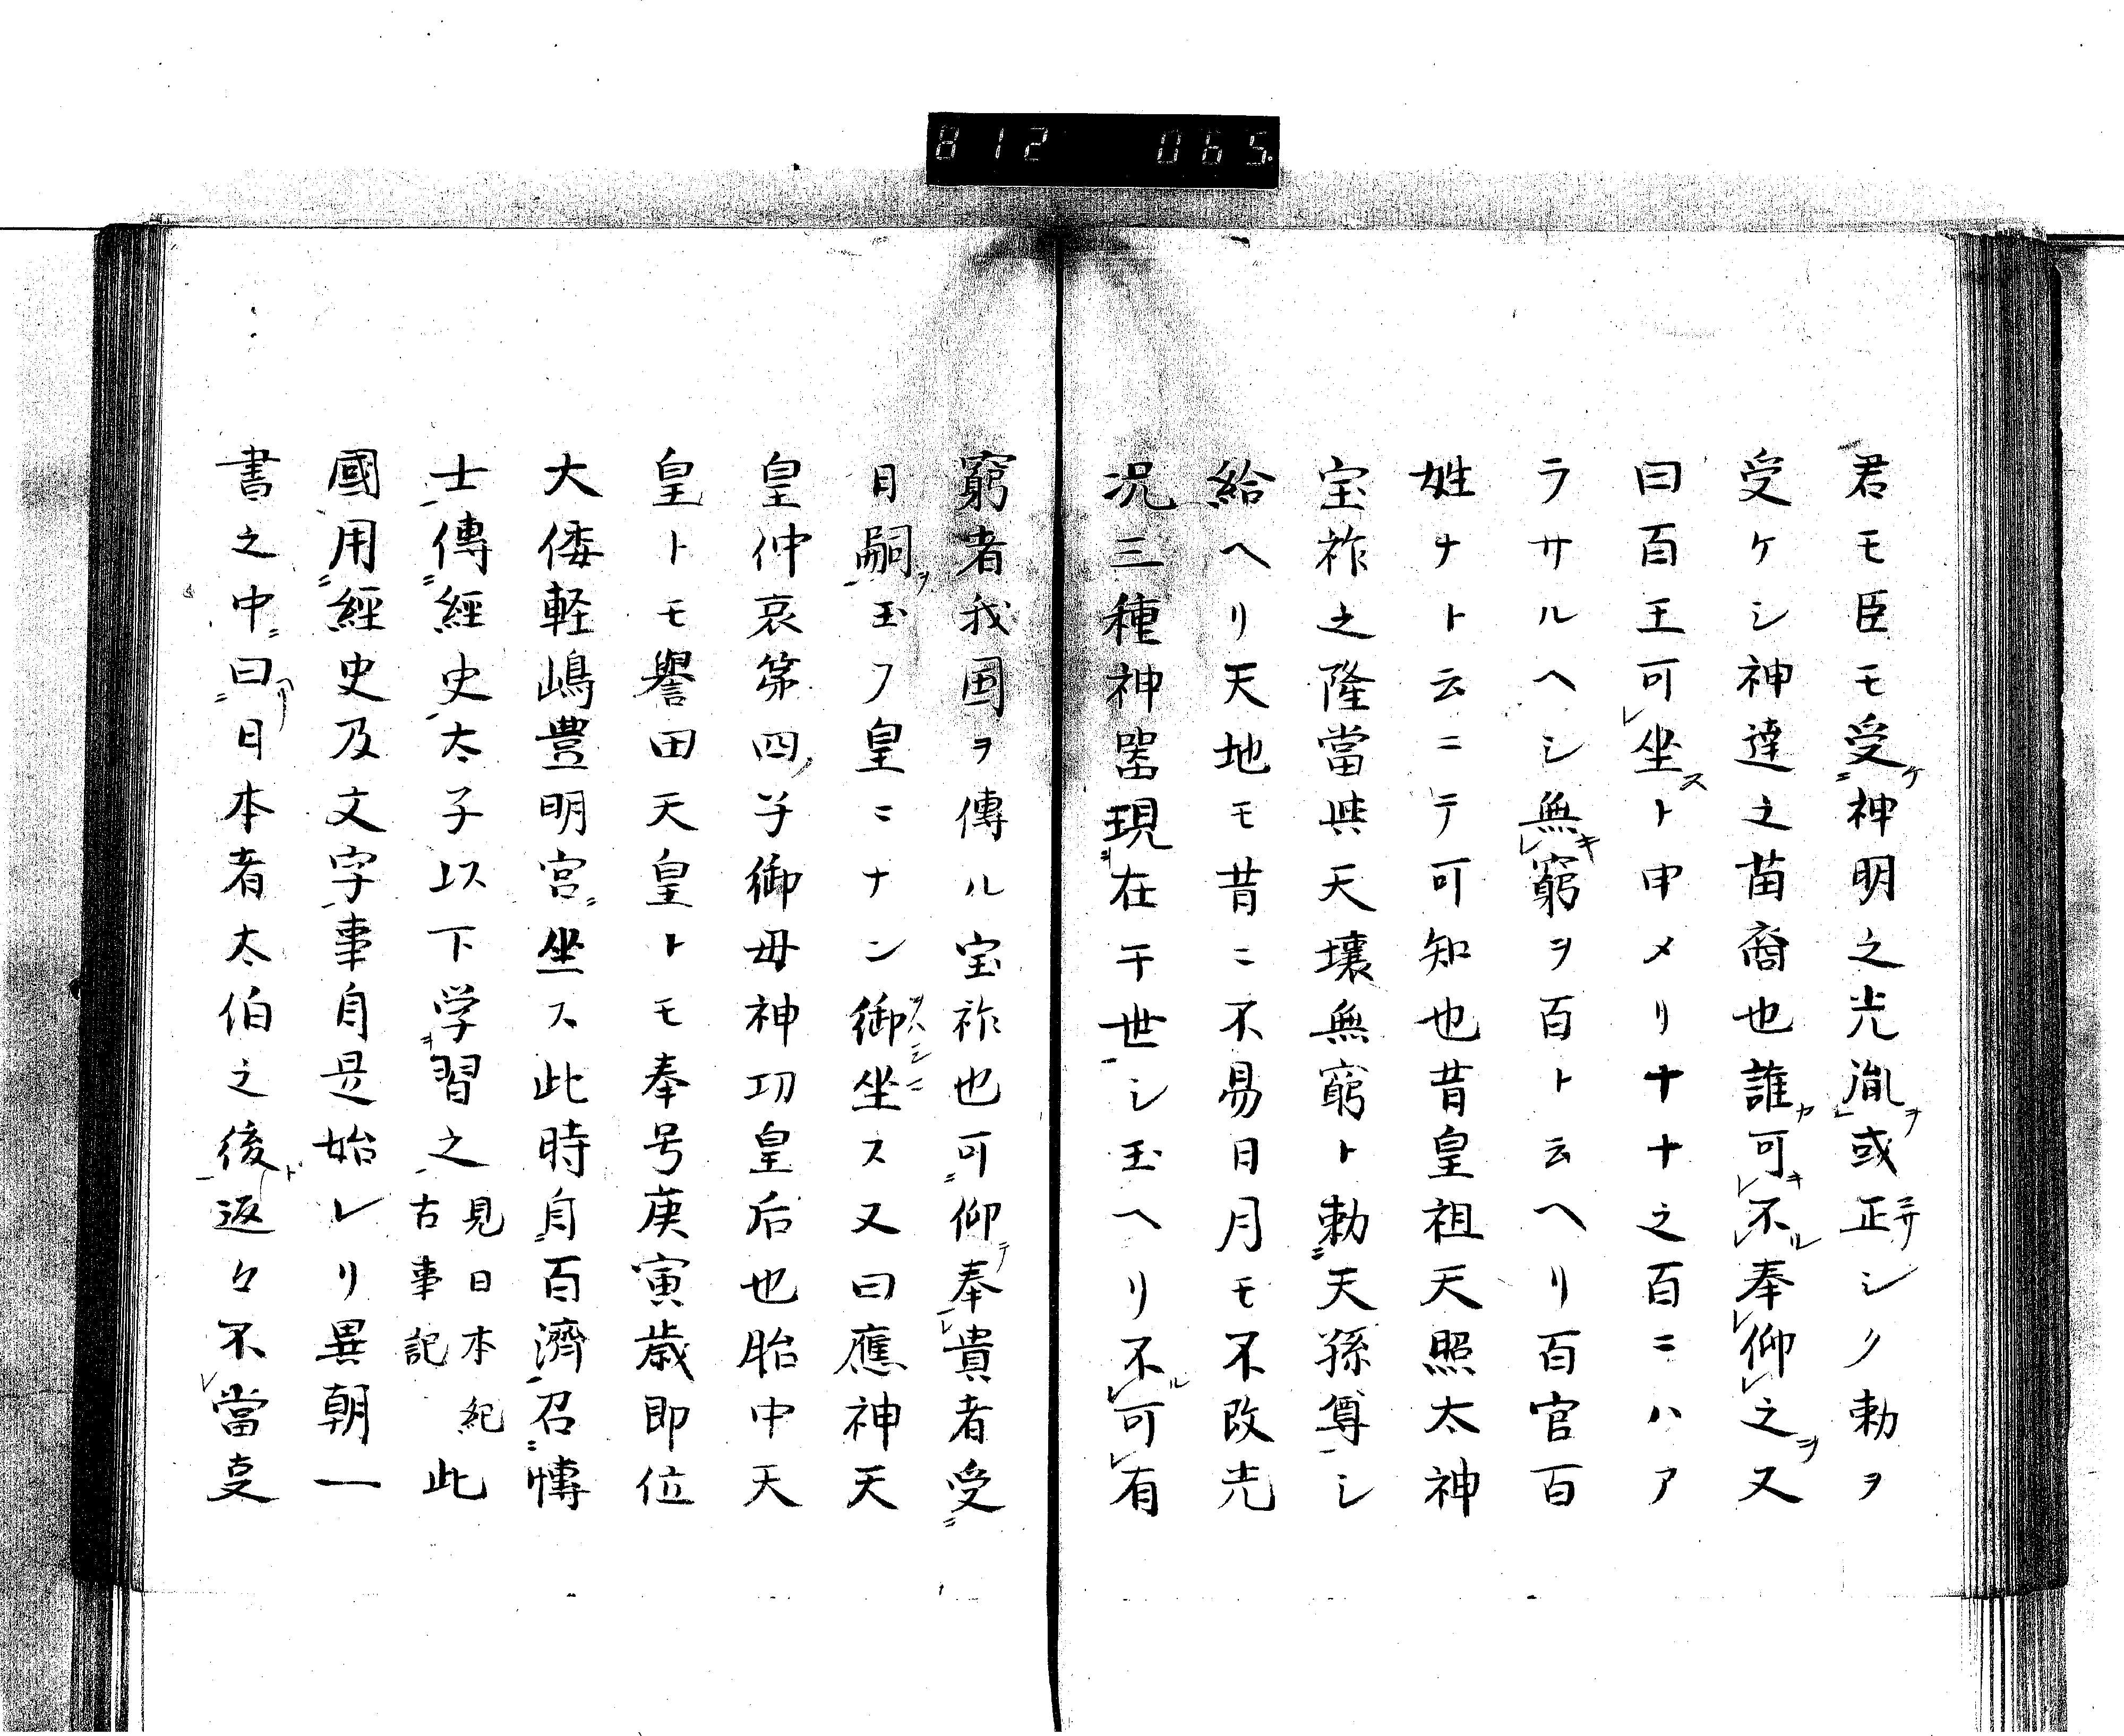 812 065
君モ臣モ受神明之光胤或正シノ勅ヲ
受ケシ神達之苗裔也誰可不奉仰之又
曰百王可坐ト申メリ十十之百ニハア
ラサルヘシ無窮ヲ百ト云ヘリ百官百
姓ナト云ニテ可知也昔皇祖天照太神
宝祚之隆當與天壌無窮ト勅天孫尊シ
給ヘリ天地モ昔ニ不易日月モ不改光
况三種神噐現在干世シ玉ヘリ不可有
窮者我國ヲ傳ル宝祚也可仰奉貴者受
日嗣玉フ皇ニナン御坐ス又曰應神天
皇仲哀第四子御母神功皇后也胎中天
皇トモ譽田天皇トモ奉号庚寅歳即位
大倭軽嶋豊明宮坐ス此時自百濟召愽
士傳經史太子以下学習之見日本紀古事記此
國用經史及文字事自是始レリ異朝一
書之中曰日本者太伯之後返々不當叓